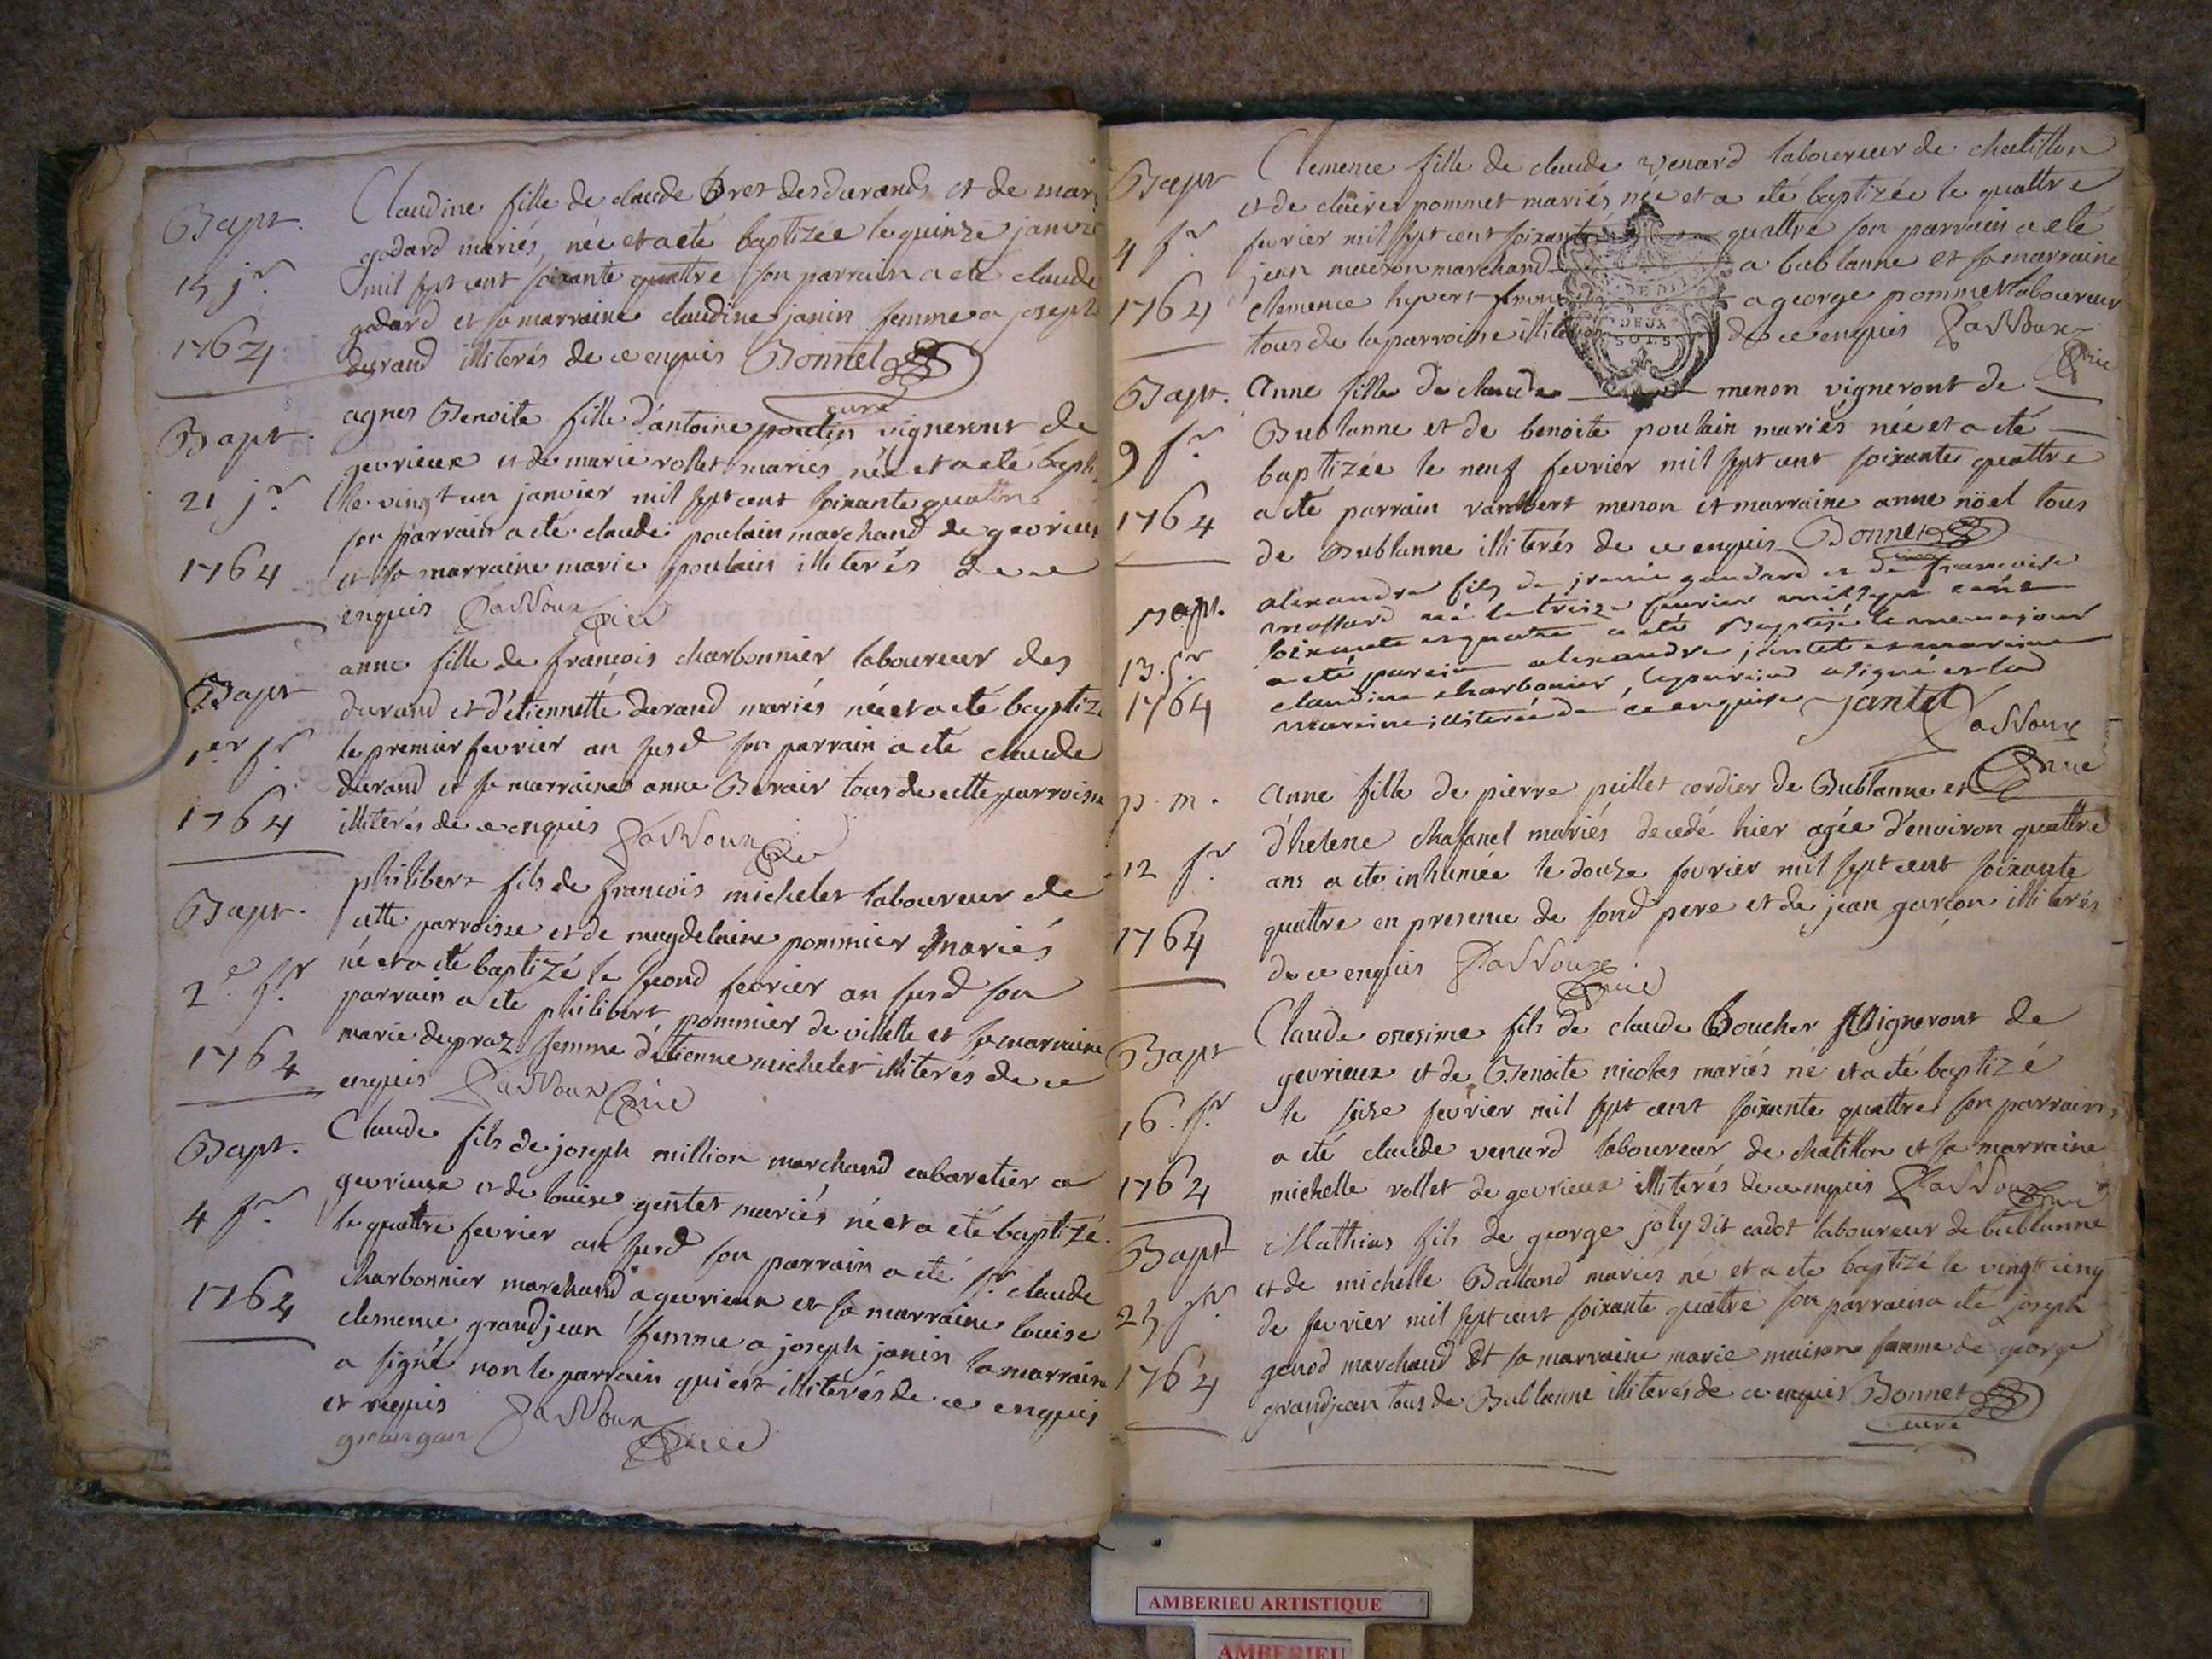 Bapt.
15 jr.
1764
Claudine fille de claude Bret des durands et de mar
godard mariés, née et a eté baptizée le quinze janvie
mil sept cent soixante quattre son parrain a eté claude
godard et sa marraine claudine janin femme a joseph
durand illiterés de ce enquis Bonnet
curé
Bapt.
21 jr.
1764
agnes Benoite fille d'antoine poulin vigneront de
gevrieux et de marie rollet mariés née et a eté bapti
le vingt un janvier mil sept cent soixante quattre
son parrain a eté claude poulain marchand de gevrieux
et sa marraine marie poulain illiterés de ce
enquis curé
Bapt
1er fr.
1764
anne fille de françois charbonnier laboureur des
durand et d'étiennette durand mariés née et a eté baptizé
le premier fevrier an susd son parrain a eté claude
durand et sa marraine anne tous de cette parroisse
illiterés de ce enquis
Bapt.
2e fr.
1764
philibert fils de françois michelet laboureur de
cette parroisse et de magdelaine pommier mariés
né et a eté baptizé le second fevrier an susd son
parrain a eté philibert pommier de villette et sa marraine
marie dupraz femme d'étienne michelet illiterés de ce
enquis curé
Bapt.
4 fr.
1764
Claude fils de joseph million marchand cabaretier a
gevrieux et de louise gentet mariés né et a eté baptizé
le quattre fevrier an susd son parrain a eté sr. claude
charbonnier marchand a gevrieux et sa marraine louise
clemence grandjean femme a joseph janin la marraine
a signé non le parrain qui est illiterés de ce enquis
et requis
grangan curé
Bapt
4 fr.
1764
Clemence fille de claude venard laboureur de chatillon
et de claire pommet mariés, née et a eté baptizée le quattre
fevrier mil sept cent soixante quattre son parrain a eté
jean maison marchand a bublanne et sa marraine
clemence hyvert femme a george pommet laboureur
tous de la parroisse illiterés de ce enquis
curé
DEUX
SOLS
Bapt.
9 fr.
1764
Anne fille de claude menon vigneront de
Bublanne et de benoite poulain mariés née et a eté
baptizée le neuf fevrier mil sept cent soixante quattre
a eté parrain menon et marraine anne nöel tous
de Bublanne illiterés de ce enquis Bonnet
curé
Bapt.
13. fr
1764
alexandre fils de gaudard et de francoise
massard né le treize fevrier mil sept cent
soixante et quatre a eté Baptisé le meme jour
a eté parein alexandre jantet et mareine
claudine charbonier, le parein a signé et la
mareine illiterée de ce enquise jantet
curé
p. m.
12 fr
1764
Anne fille de pierre peillet cordier de Bublanne et
d'helene chafanel mariés decedé hier agée d'environ quattre
ans a eté inhumée le douze fevrier mil sept cent soixante
quattre en presence de sond pere et de jean garçon illiterés
de ce enquis
curé
Bapt
16. fr.
1764
Claude onesime fils de claude Boucher vigneront de
gevrieux et de Benoite nicolas mariés né et a eté baptizé
le seize fevrier mil sept cent soixante quattre son parrain
a eté claude venard laboureur de chatillon et sa marraine
michelle rollet de gevrieux illiterés de ce enquis
Bapt
25 fr.
1764
Mathias fils de george joly dit cadot laboureur de bublanne
et de michelle Balland mariés né et a eté baptizé le vingt cinq
de fevrier mil sept cent soixante quattre son parrain a eté joseph
genod marchand et sa marraine marie maison femme de george
grandjean tous de Bublanne illiterés de ce enquis Bonnet
curé
AMBERIEU ARTISTIQUE
AMBERIEU